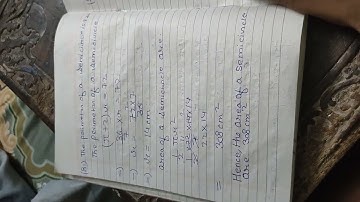 (8) The perimeter of a semicircle
The perimeter of a semicircle
(π + 2) r = 72
⇒ 36/7 r = 72
⇒ r = 72×7/36
⇒ r = 14 cm
area of a semicircle are
1/2 πr²
1/2 × 22/7 × 14 × 14
22 × 14
= 308 cm²
Hence, the area of a semicircle
are 308 cm²